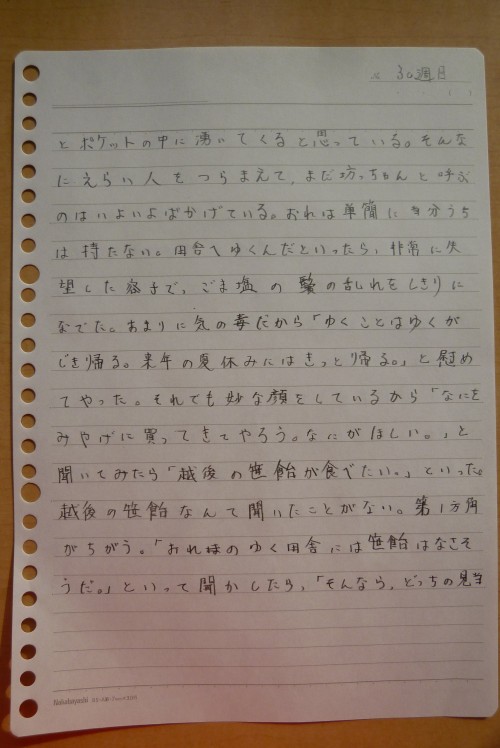 30週目
とポケットの中に湧いてくると思っている。そんな
にえらい人をつらまえて、まだ坊っちゃんと呼ぶ
のはいよいよばかげている。おれは単簡に当分うち
は持たない。田舎へゆくんだといったら、非常に失
望した容子で、ごま塩の鬢の乱れをしきりに
なでた。あまりに気の毒だから「ゆくことはゆくが
じき帰る。来年の夏休みにはきっと帰る。」と慰め
てやった。それでも妙な顔をしているから「なにを
みやげに買ってきてやろう。なにがほしい。」と
聞いてみたら「越後の笹飴が食べたい。」といった。
越後の笹飴なんて聞いたことがない。第1方角
がちがう。「おれのゆく田舎には笹飴はなさそ
うだ。」といって聞かしたら、「そんなら、どっちの見当
Nakabayashi